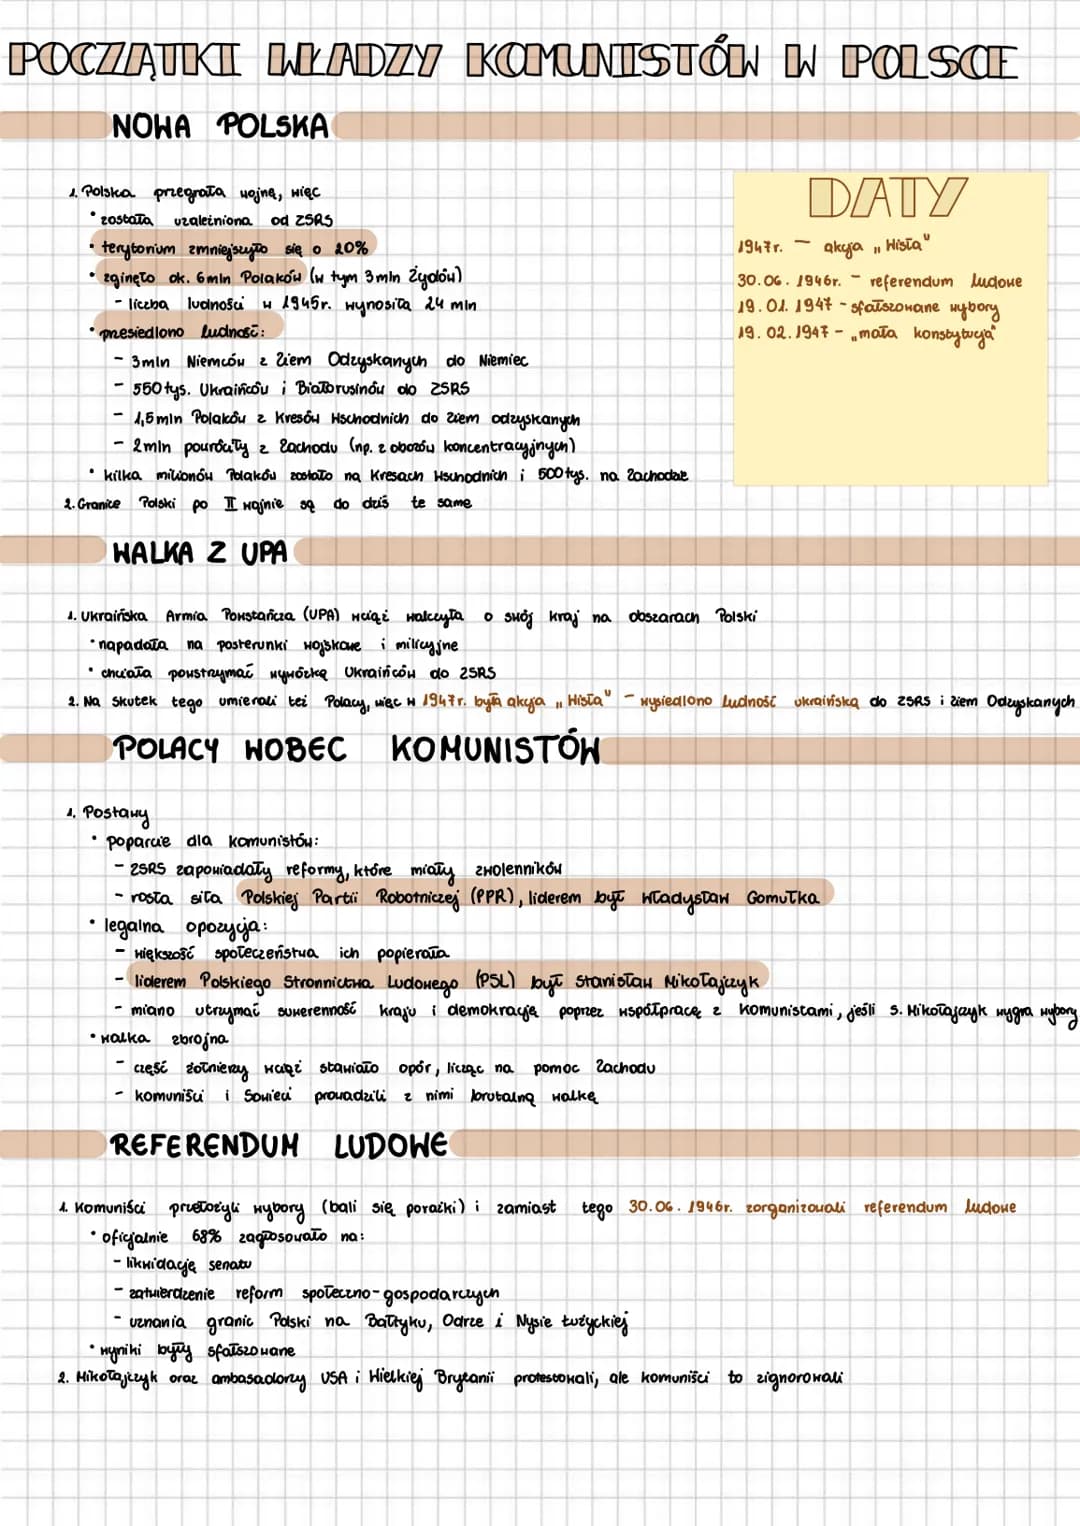 POCZĄTKI WŁADZY KOMUNISTÓW W POLSCE
NOWA POLSKA
1. Polska przegrała wojnę, więc
• została uzależniona od ZSRS
• terytorium zmniejszyło się o 20%
• zginęło ok. 6 mln Polaków (w tym 3 mln Żydów)
- liczba ludności w 1945r. wynosiła 24 mln
• przesiedlono ludność:
- 3 mln Niemców z Ziem Odzyskanych do Niemiec
- 550 tys. Ukraińców i Białorusinów do ZSRS
- 1,5 mln Polaków z Kresów Wschodnich do Ziem odzyskanych
- 2 mln powróciły z Zachodu (np. z obozów koncentracyjnych)
• kilka milionów Polaków zostało na Kresach Wschodnich i 500 tys. na Zachodzie
2. Granice Polski po II wojnie są do dziś te same
DATY
1947r. - akcja „Wisła"
30.06.1946r. - referendum ludowe
19.01.1947 - sfałszowane wybory
19.02.1947 - „mała konstytucja"
WALKA Z UPA
1. Ukraińska Armia Powstańcza (UPA) wciąż walczyła o swój kraj na obszarach Polski
• napadała na posterunki wojskowe i milicyjne
• chciała powstrzymać wywózkę Ukraińców do ZSRS
2. Na skutek tego umierali też Polacy, więc w 1947r. była akcja „Wisła" - wysiedlono ludność ukraińską do ZSRS i Ziem Odzyskanych
POLACY WOBEC KOMUNISTÓW
1. Postawy
• poparcie dla komunistów:
- ZSRS zapowiadały reformy, które miały zwolenników
- rosła siła Polskiej Partii Robotniczej (PPR), liderem był Władysław Gomułka
• legalna opozycja:
- większość społeczeństwa ich popierała
- liderem Polskiego Stronnictwa Ludowego (PSL) był Stanisław Mikołajczyk
- miano utrzymać suwerenność kraju i demokrację poprzez współpracę z komunistami, jeśli S. Mikołajczyk wygra wybory
• walka zbrojna
- część żołnierzy wciąż stawiało opór, licząc na pomoc Zachodu
- komuniści i Sowieci prowadzili z nimi brutalną walkę
REFERENDUM LUDOWE
1. Komuniści przełożyli wybory (bali się porażki) i zamiast tego 30.06.1946r. zorganizowali referendum ludowe
• oficjalnie 68% zagłosowało na:
- likwidację senatu
- zatwierdzenie reform społeczno-gospodarczych
- uznania granic Polski na Bałtyku, Odrze i Nysie Łużyckiej
• wyniki były sfałszowane
2. Mikołajczyk oraz ambasadorzy USA i Wielkiej Brytanii protestowali, ale komuniści to zignorowali